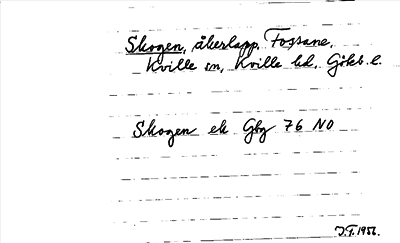 Skogen, åkerlapp, Fossane,
Kville sn, Kville hd, Göteb. l.
Skogen ek Gbg 76 NO
J.T. 1956.